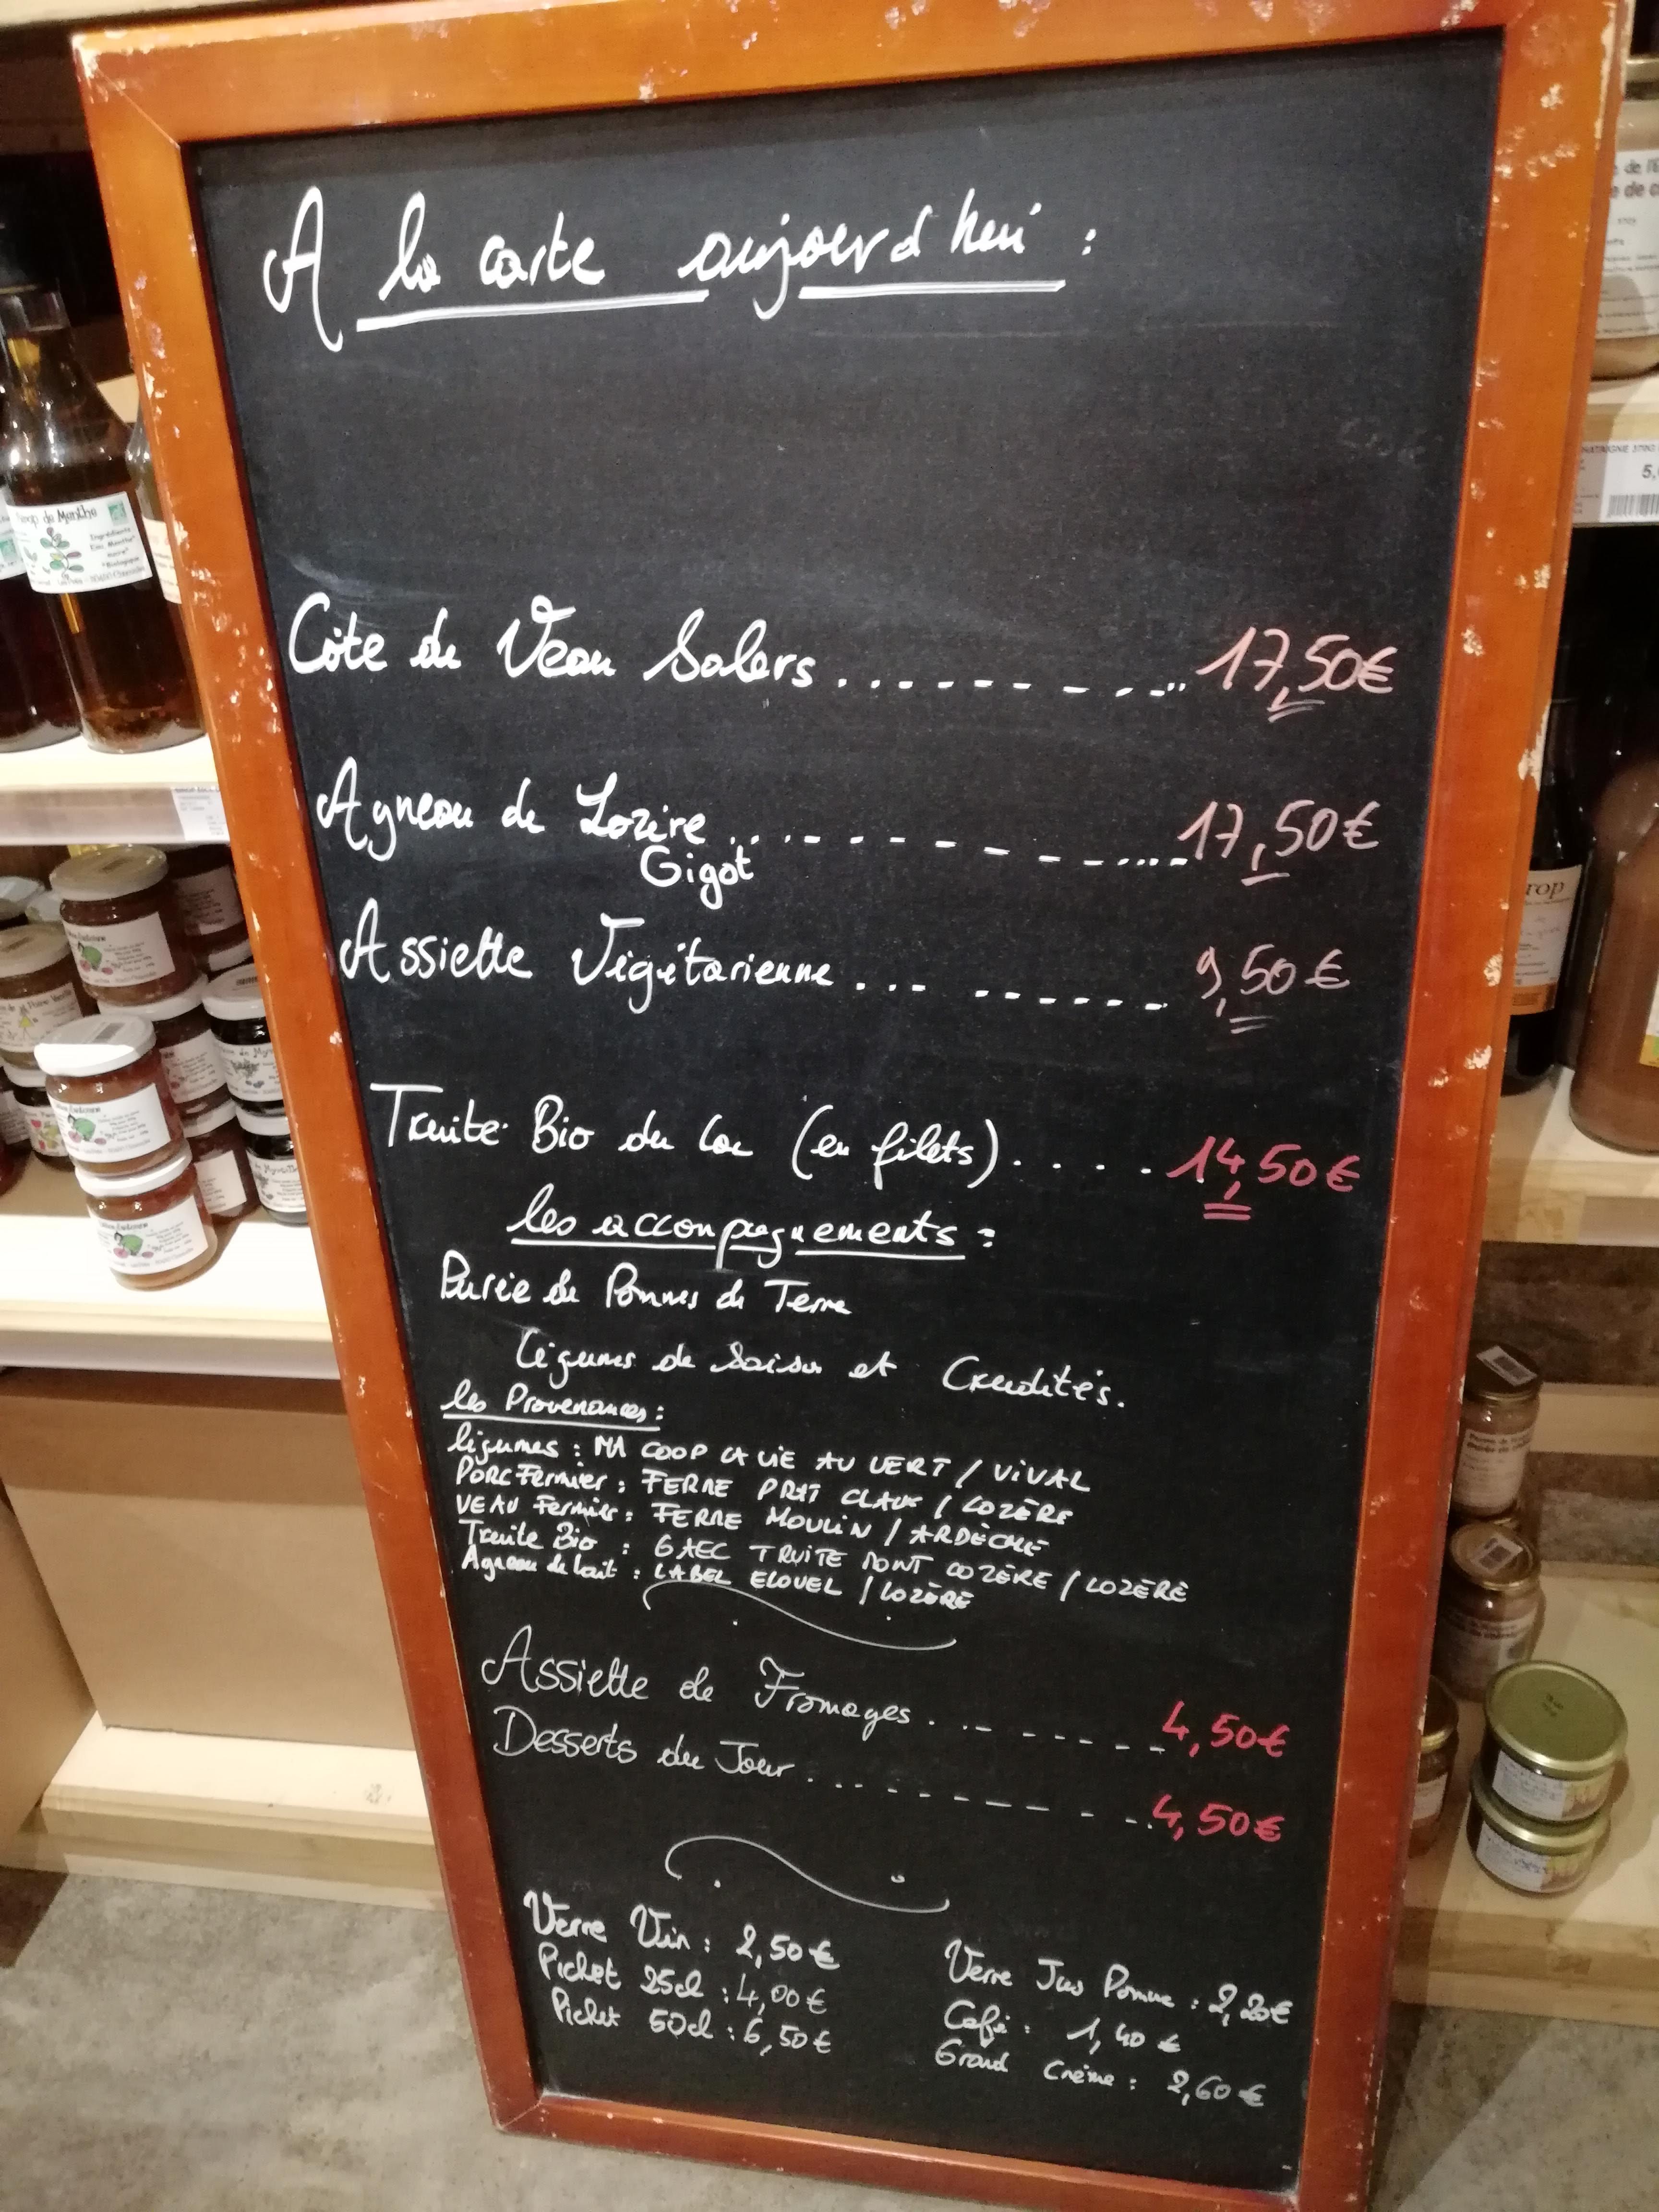 A la carte aujourd'hui :
Côte de Veau Salers 17,50€
Agneau de Lozère 17,50€
Gigot
Assiette Végétarienne 9,50€
Truite Bio du Lac (en filets) 14,50€
les accompagnements :
Purée de Pommes de Terre
Légumes de Saison et Crudités.
les Provenances :
légumes : MA COOP LA VIE AU VERT / VIVAL
PORC Fermier : FERME PRAT CLAUX / LOZÈRE
VEAU Fermier : FERME MOULIN / ARDÈCHE
Truite Bio : GAEC TRUITE MONT LOZÈRE / LOZÈRE
Agneau de lait : LABEL ELOVEL / LOZÈRE
Assiette de Fromages 4,50€
Desserts du Jour 4,50€
Verre Vin : 2,50€
Pichet 25cl : 4,00€
Pichet 50cl : 6,50€
Verre Jus Pomme : 2,20€
Café : 1,40€
Grand Crème : 2,60€
de Menthe